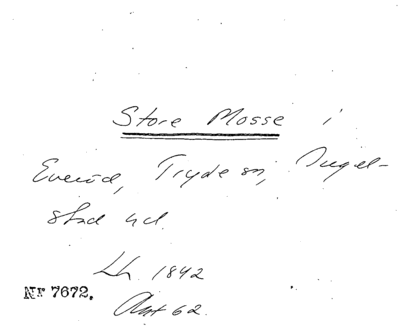 Store Mosse i
Everöd, Tryde sn, Ingel-
stad hd.
Lh. 1842
Akt 62.
Nr 7672.